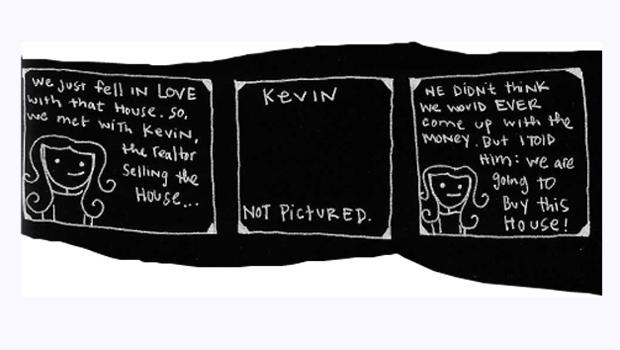 We just fell IN LOVE
with that House. So,
we met with Kevin,
the realtor
selling the
House...
KEVIN
NOT PICTURED.
WE DIDN't tHINK
we would EVER
come up with the
MONEY. But I TOLD
Him: we are
going to
Buy this
House!